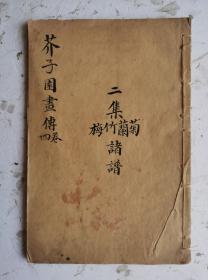 二集
梅竹蘭菊
諸譜
芥子園畫傳
四卷